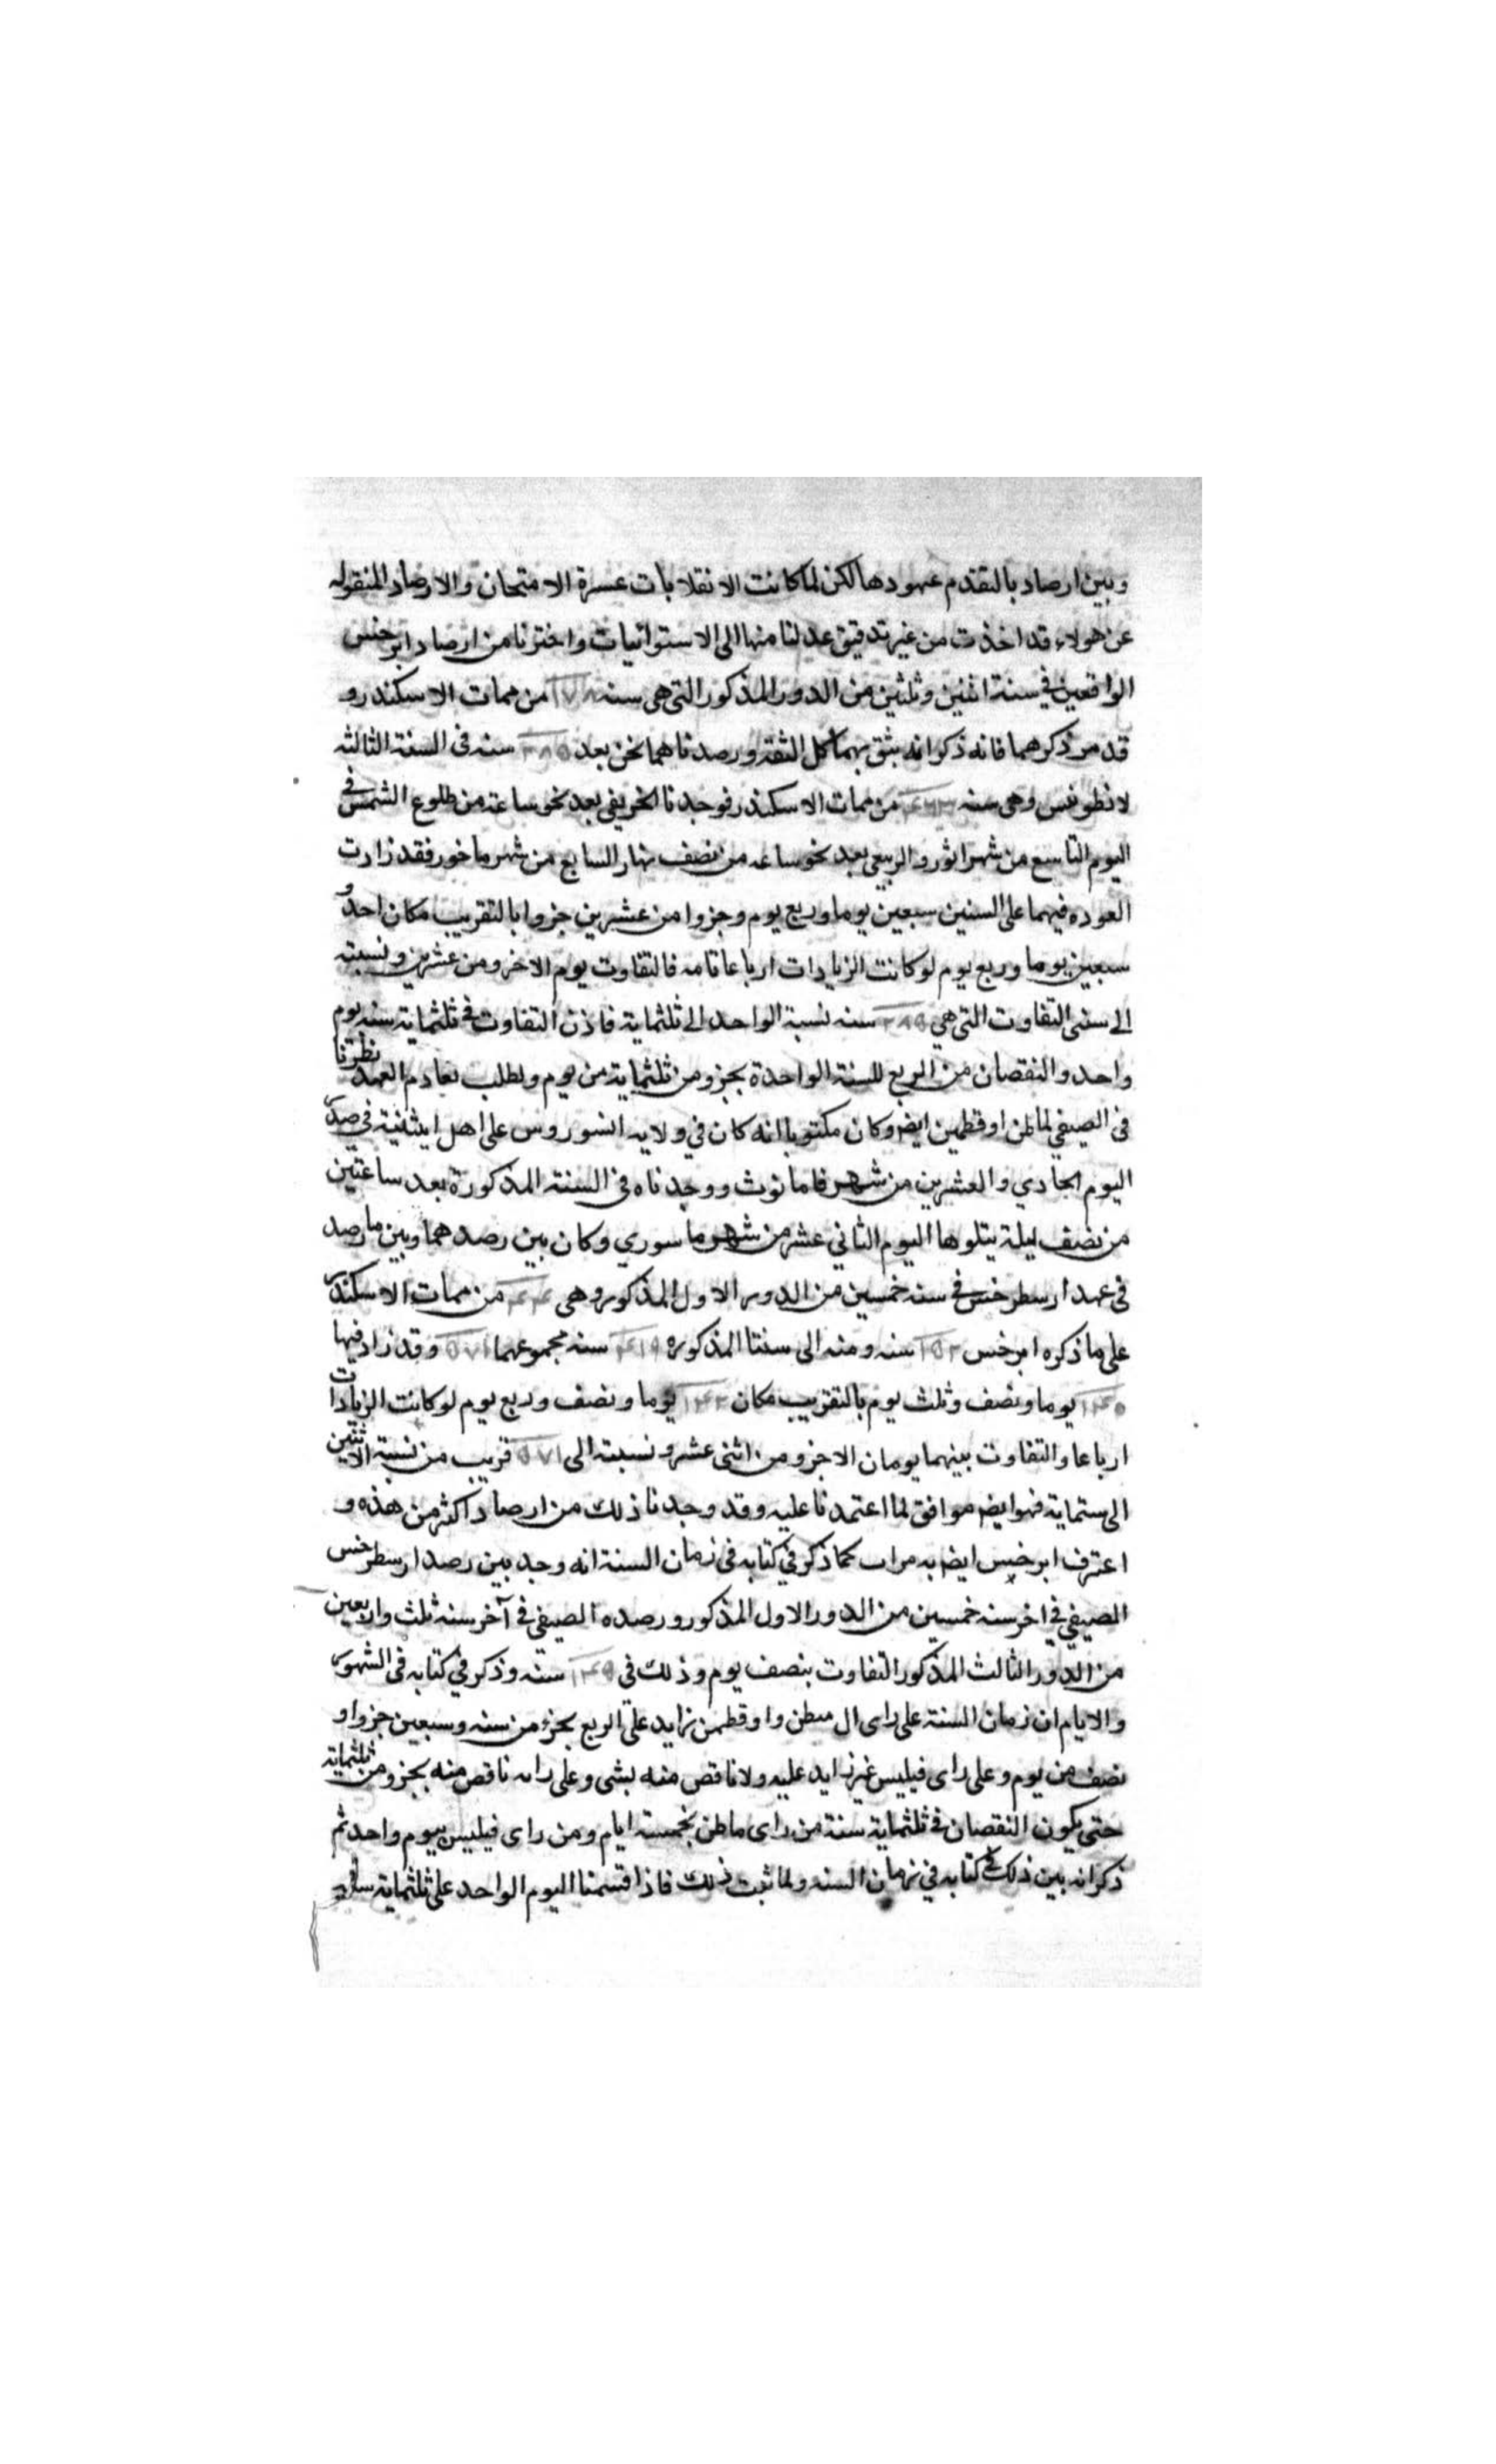 وبين ارصاد بالتقدم عهودها لكن لما كانت الانقلابات عسرة الامتحان والارصاد المنقوله
عن هولاء قد اخذت من غير تدقيق عدلنا منها الى الاستوائيات واخترنا من ارصاد ابرخس
الواقعين في سنة اثنين وثلثين من الدور المذكور التي هي سنه ١٧٨ من ممات الاسكندر و
قد مر ذكرهما فانه ذكر انه يثق بهما كل الثقه ورصدناهما نحن بعد ٢٨٥ سنه فى السنة الثالثه
لانطونس وهى سنه ۴٦٣ من ممات الاسكندر فوجدنا الخريفى بعد نحو ساعة من طلوع الشمس في
اليوم التاسع من شهر اثور والربيعى بعد نحو ساعه من نصف نهار السابع من شهر ماخور فقد زادت
العوده فيهما على السنين سبعين يوما وربع يوم وجزوا من عشرين جزوا بالتقريب مكان احد و
سبعين يوما وربع يوم لو كانت الزيادات ارباعا تامه فالتفاوت يوم الا جزو من عشرين ونسبته
الى سنى التفاوت التي هي ٢٨٥ سنه نسبة الواحد الى ثلثماية فاذن التفاوت في ثلثماية سنه يوم
واحد والنقصان من الربع للسنة الواحدة بجزو من ثلثماية من يوم ولطلب تقادم العهد نظرنا
فى الصيفي لماطن اوقطمين ايضا وكان مكتوبا انه كان في ولايه انسوروس على اهل ايثنية في صدر
اليوم الحادي والعشرين من شهر فامانوث ووجدناه فى السنة المذكورة بعد ساعتين
من نصف ليلة يتلوها اليوم الثاني عشر من شهر ماسوري وكان بين رصدهما وبين ما رصد
فى عهد ارسطرخس في سنه خمسين من الدور الاول المذكور وهى ۴۴ من ممات الاسكندر
على ما ذكره ابرخس ١٥٢ سنه ومنه الى سنتنا المذكوره ۴١٩ سنه مجموعهما ٥٧١ وقد زاد فيها
١۴٠ يوما ونصف وثلث يوم بالتقريب مكان ١۴٢ يوما ونصف وربع يوم لو كانت الزيادات
ارباعا والتفاوت بينهما يومان الا جزو من اثنى عشر ونسبته الى ٥٧١ قريب من نسبة الاثنين
الى ستماية فهو ايضا موافق لما اعتمدنا عليه وقد وجدنا ذلك من ارصاد اكثر من هذه و
اعترف ابرخس ايضا به مرات كما ذكر في كتابه فى زمان السنة انه وجد بين رصد ارسطرخس
الصيفي في اخر سنه خمسين من الدور الاول المذكور ورصده الصيفى فى آخر سنه ثلث واربعين
من الدور الثالث المذكور التفاوت بنصف يوم وذلك فى ١۴٥ سنه وذكر في كتابه فى الشهور
والايام ان زمان السنة على راى ال مىطن واوقطمن زايد على الربع بجزء من سته وسبعين جزوا و
نصف من يوم وعلى راى فيلبس غير زايد عليه ولا ناقص منه بشى وعلى رايه ناقص منه بجزو من ثلثماية
حتى يكون النقصان في ثلثماية سنة من راى ماطن بخمسة ايام ومن راى فيلبس بيوم واحد ثم
ذكر انه بين ذلك في كتابه في زمان السنه ولما ثبت ذلك فاذا قسمنا اليوم الواحد على ثلثماية سنه